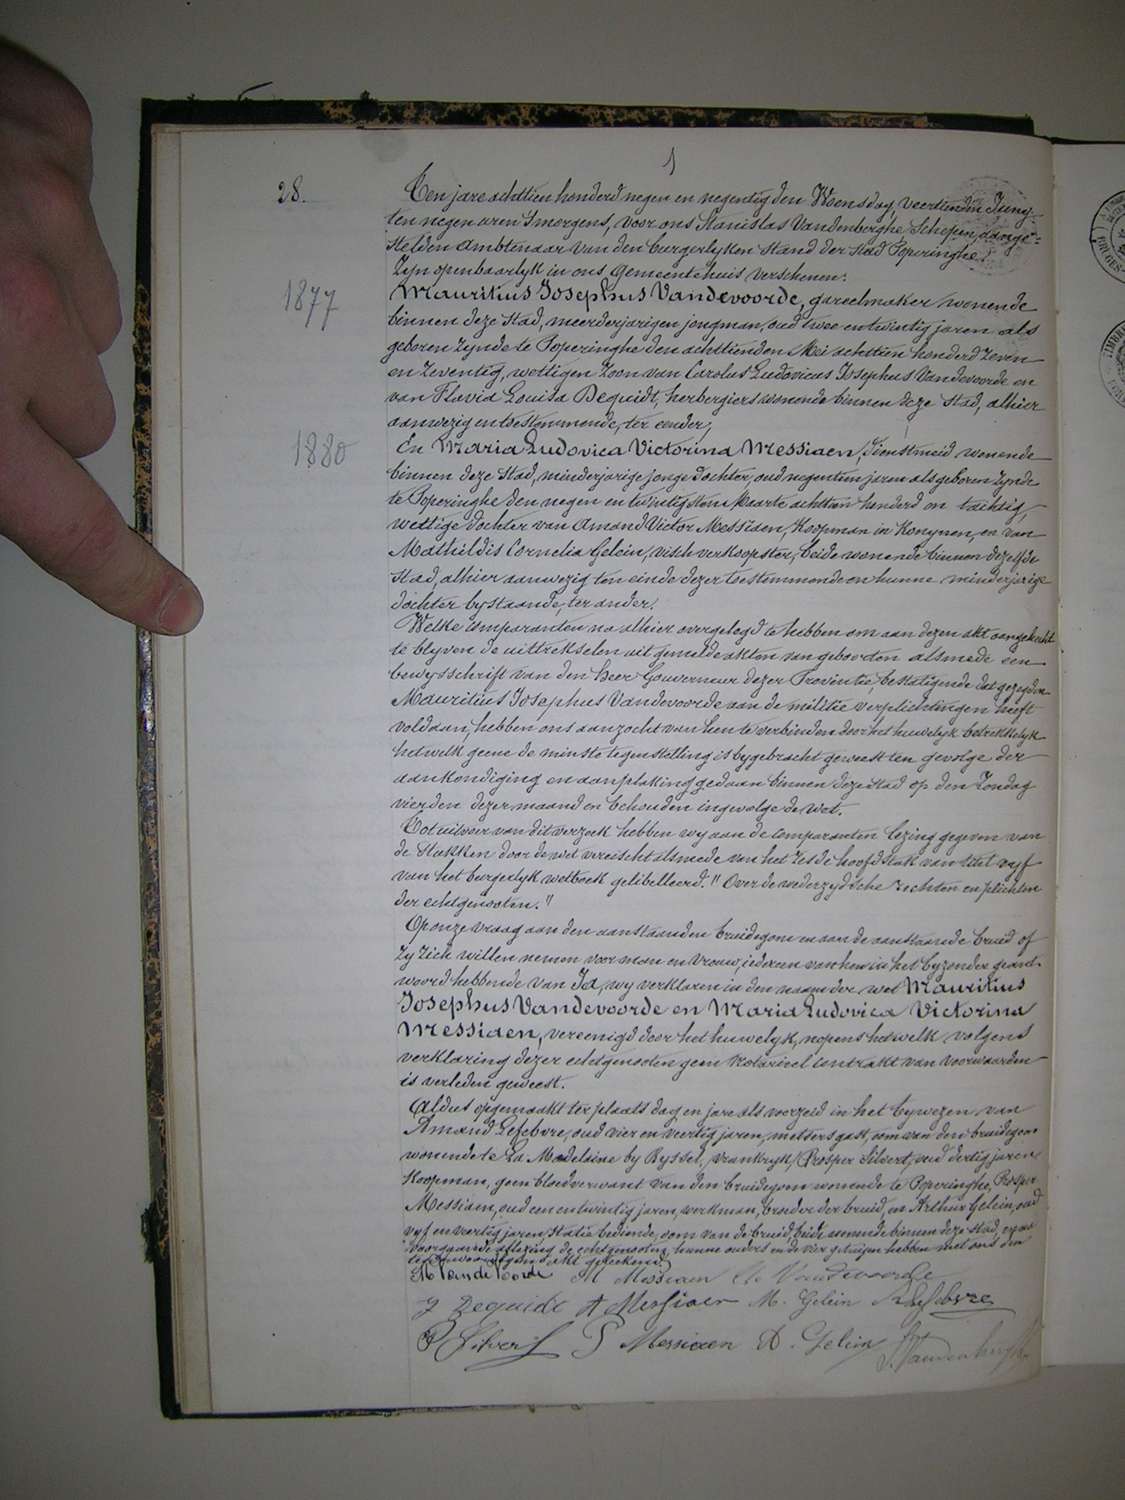 28.
Ten jare achttien honderd negen en negentig den Woensdag, veertienden Juny
ten negen uren 's morgens, voor ons Stanislas Vandenberghe Schepen, aange-
stelden Ambtenaar van den burgerlyken Stand der Stad Poperinghe,
Zyn openbaarlyk in ons gemeentehuis verschenen:
1877
Mauritius Josephus Vandevoorde, gareelmaker wonende
binnen deze Stad, meerderjarigen jongman, oud twee en twintig jaren als
geboren zynde te Poperinghe den achttienden Mei achttien honderd zeven
en zeventig, wettigen zoon van Carolus Ludovicus Josephus Vandevoorde en
van Flavia Louisa Dequidt, herbergiers wonende binnen deze Stad, alhier
aanwezig en toestemmende, ter eender,
1880
En Maria Ludovica Victorina Messiaen, dienstmeid wonende
binnen deze Stad, minderjarige jonge dochter, oud negentien jaren als geboren zynde
te Poperinghe den negen en twintigsten Maarte achttien honderd en tachtig,
wettige dochter van Amand Victor Messiaen, Koopman in Konynen, en van
Mathildis Cornelia Gelein, vischverkoopster, beide wonende binnen dezelfde
Stad, alhier aanwezig ten einde dezer toestemmende en hunne minderjarige
dochter bystaande, ter ander.
Welke comparanten na alhier overgelegd te hebben om aan dezen akt aangehecht
te blyven de uittrekselen uit gemelde akten van geboorten alsmede een
bewysschrift van den heer Gouverneur dezer Provincie, bestatigende dat gezegden
Mauritius Josephus Vandevoorde aan de militie verplichtingen heeft
voldaan, hebben ons aanzocht van hen te verbinden door het huwelyk betrekkelyk
hetwelk geene de minste tegenstelling is bygebracht geweest ten gevolge der
aankondiging en aanplaking gedaan binnen deze Stad op den Zondag
vierden dezer maand en behouden ingevolge de wet.
Tot uitvoer van dit verzoek hebben wy aan de comparanten lezing gegeven van
de Stukken door de wet vereischt alsmede van het zesde hoofdstuk van titel vyf
van het burgerlyk wetboek gelibelleerd. " Over de wederzydsche rechten en plichten
der echtgenooten. "
Op onze vraag aan den aanstaanden bruidegom en aan de aanstaande bruid of
zy zich willen nemen voor man en vrouw, iedereen van hen in het byzonder geant-
woord hebbende van Ja, wy verklaren in den naam der wet Mauritius
Josephus Vandevoorde en Maria Ludovica Victorina
Messiaen, vereenigd door het huwelyk, nopens hetwelk volgens
verklaring dezer echtgenooten geen Notarieel contrakt van voorwaarden
is verleden geweest.
Aldus opgemaakt ter plaats dag en jare als voorzeid in het bywezen van
Amand Lefebvre, oud vier en veertig jaren, metsersgast, oom van den bruidegom
wonende te La Madelaine by Ryssel, /Vrankryk/ Prosper Silvert, oud dertig jaren
Koopman, geen bloedverwant van den bruidegom wonende te Poperinghe, Prosper
Messiaen, oud een en twintig jaren, werkman, broeder der bruid, en Arthur Gelein, oud
vyf en veertig jaren, Statie bediende, oom van de bruid, beide wonende binnen deze Stad, en na
voorgaande aflezing de echtgenooten, hunne ouders en de vier getuigen hebben met ons den
tegenwoordigen akt geteekend
M Vandevoorde M Messiaen Ch Vandevoorde
F Dequidt A Messiaen M. Gelein A Lefebvre
P Silvert P Messiaen A. Gelein S. Vandenberghe